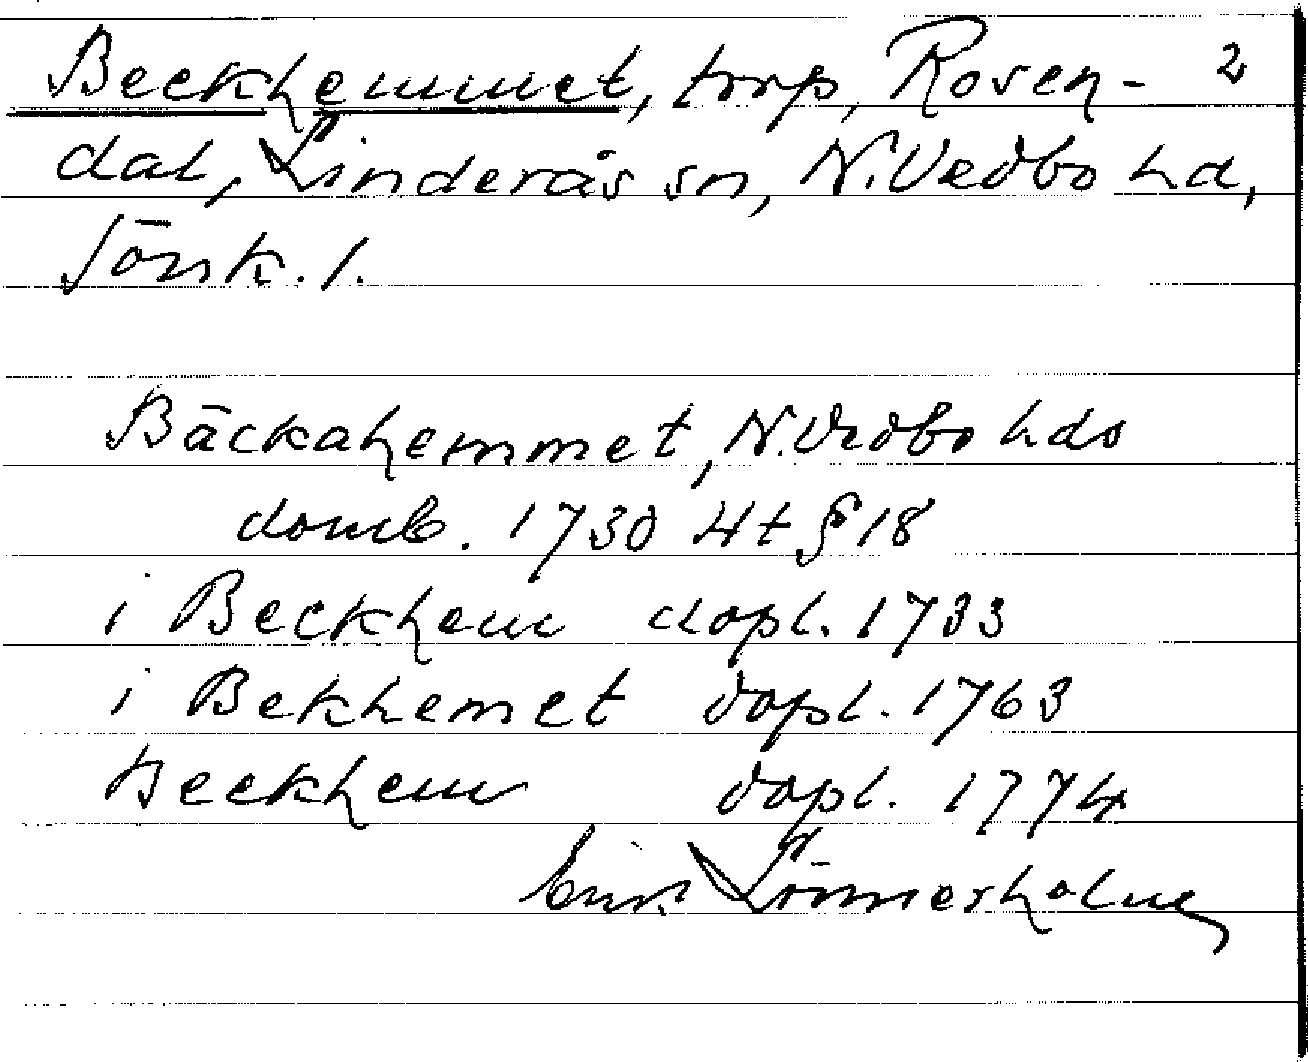 Beckhemmet, torp, Rosen- 2
dal, Linderås sn, N. Vedbo hd,
Jönk. l.
Bäckahemmet, N. Vedbo hds
domb. 1730 Ht § 18
i Beckhem dopl. 1733
i Bekhemet dopl. 1763
Beckhem dopl. 1774
Erik Lönnerholm